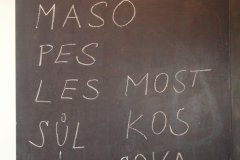 MASO
PES
LES MOST
SŮL KOS